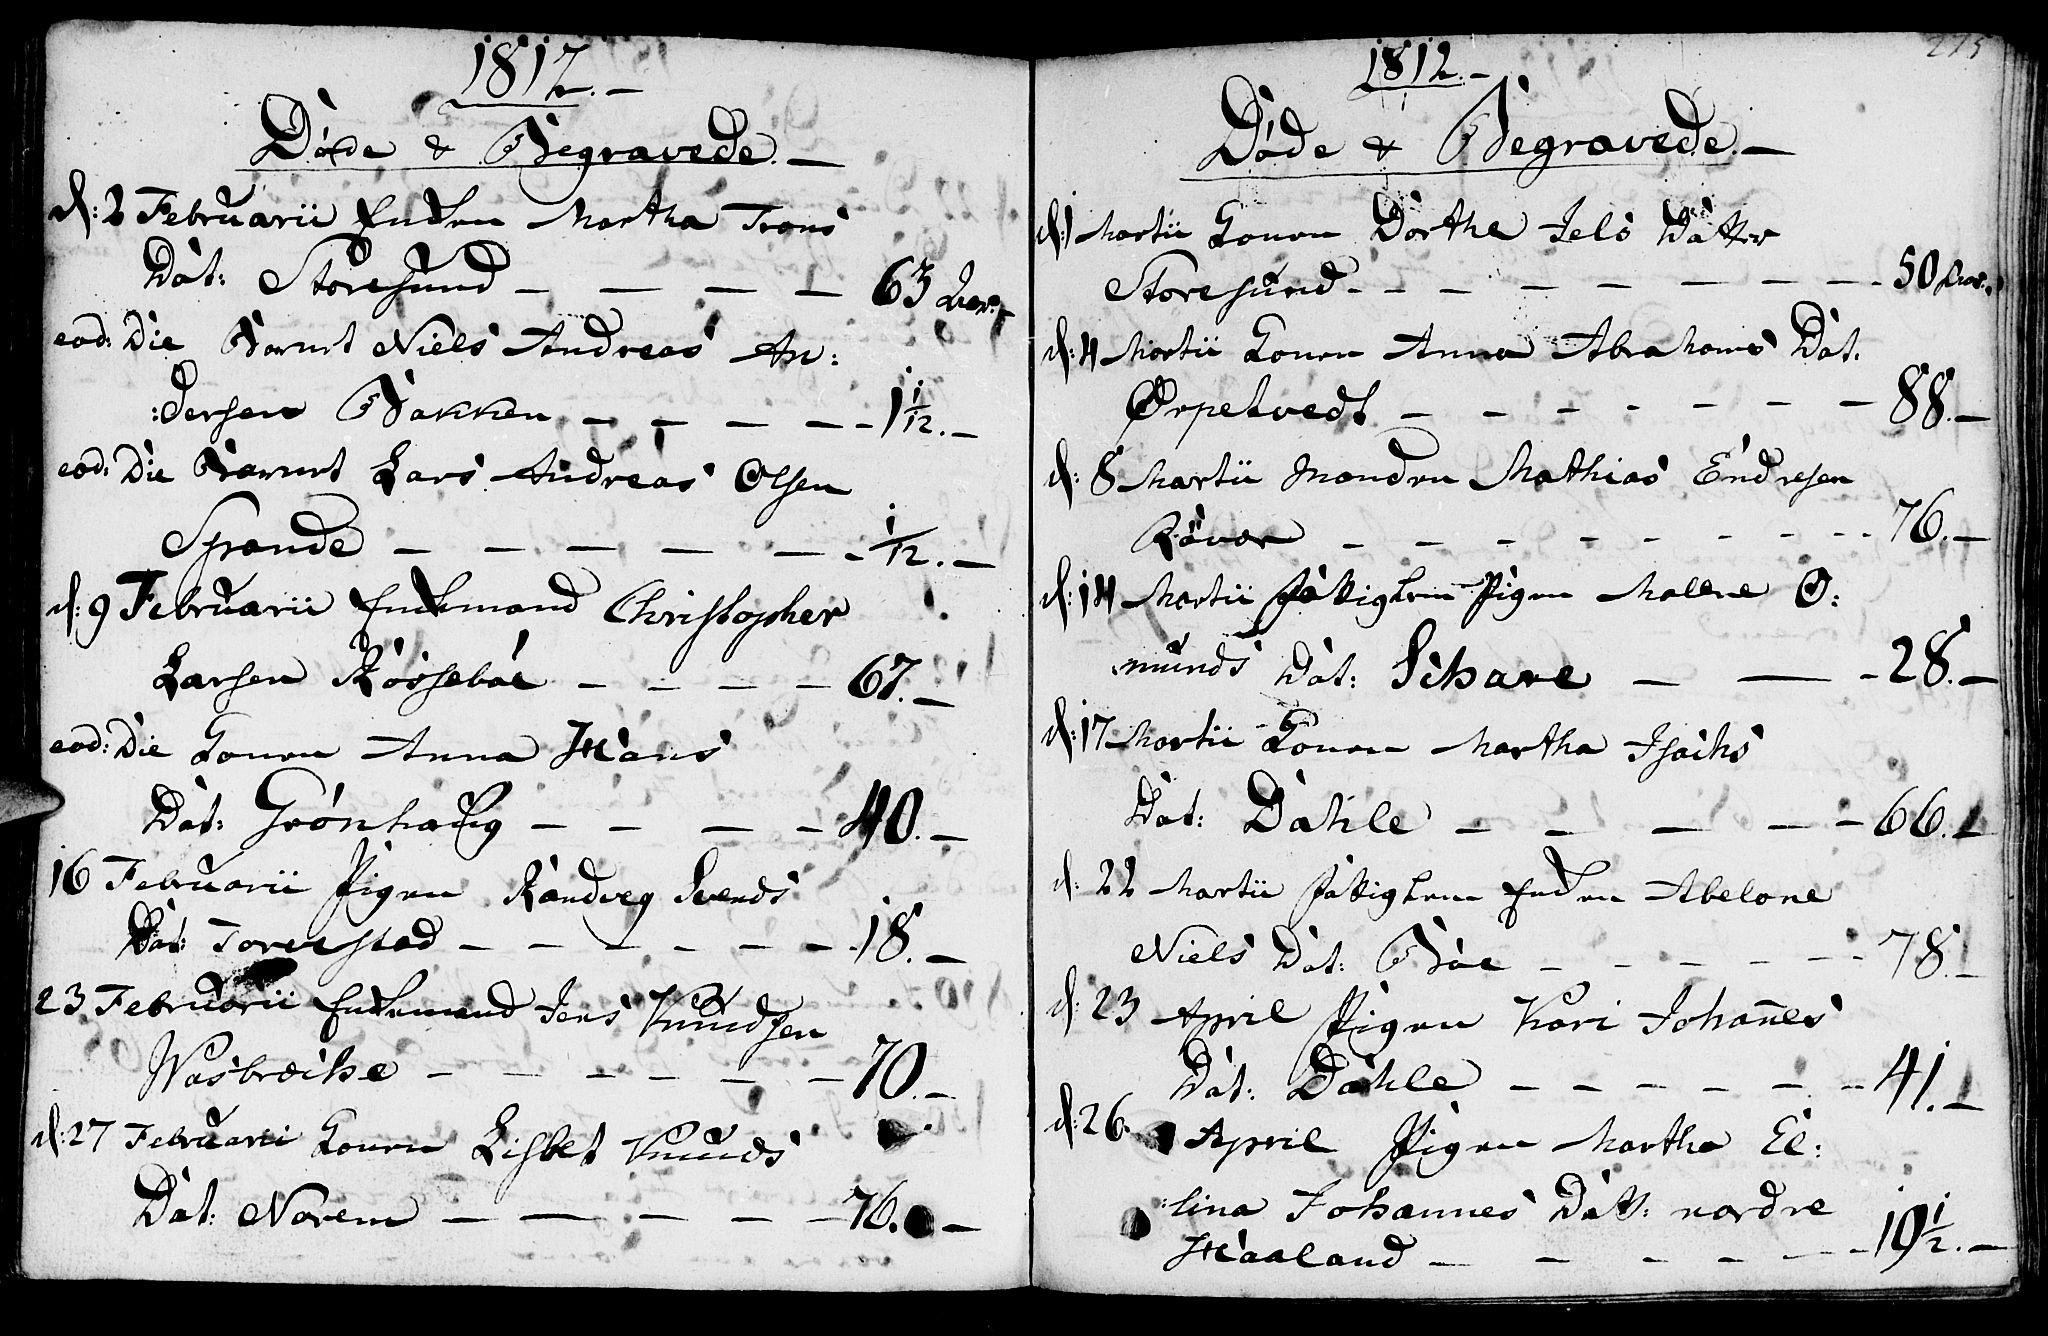 1812.-
Døde & Begravede.-
d: 2 Februarii Enken Martha Trons
Dat: Storesund - - - - 63 Aar.-
eod: Die Barnet Niels Andreas An:
:dersen Bakken - - - - 1 1/12.-
eod: Die Barnet Lars Andreas Olsen
Spande - - - - - 1/12.-
d: 9 Februarii Enkemand Christopher
Larsen Røssebøe - - - - 67.-
eod: Die Konen Anna Hans
Dat: Grønhaug - - - - 40.-
16 Februarii Pigen Randveg Svends
Dat: Torvestad - - - - - 18.-
23 Februarii Enkemand Jens Knudsen
Wasbrecke - - - - - - 70.-
d: 27 Februarii Konen Lisbet Knuds
Dat: Norem - - - - - 76.-
275
1812.-
Døde & Begravede.-
d: 1 Martii Konen Dorthe Jels Datter
Storesund - - - - - - - - 50 Aar.
d: 4 Martii Konen Anna Abrahams Dat.
Ørpetvedt - - - - - - - 88.-
d: 8 Martii Manden Mathias Endresen
Røvær - - - - - - - - 76.-
d: 14 Martii fattiglem Pigen Mallene O:
:munds Dat: Schare - - - 28.-
d: 17 Martii Konen Martha Isachs
Dat: Dahle - - - - - 66.-
d: 22 Martii fattiglem Enken Abelone
Niels Dat: Bøe - - - - - - 78.-
d: 23 April Pigen Kari Johannes
Dat: Dahle - - - - - - 41.-
d: 26. April Pigen Martha El:
:lina Johannes Datt: nordre
Haaland - - - - - 19 1/2.-